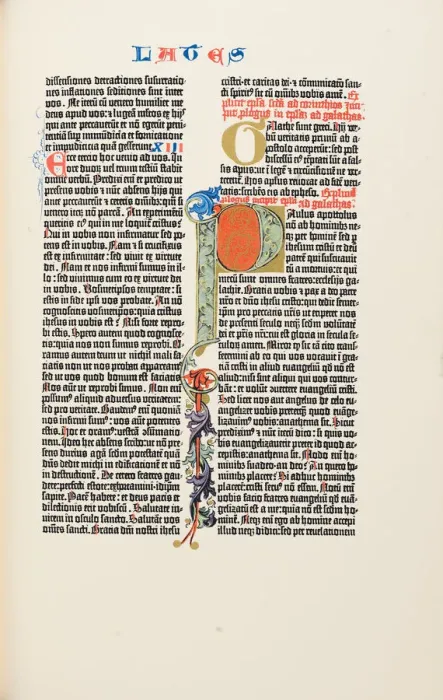 LATES
dissensiones detractiones susurratio-
nes inflationes sediciones sint inter
vos. Ne iterū cū venero humiliet me
deus apud vos: et lugeā multos ex hijs
qui ante peccaverūt et nō egerūt peni-
tentiā sup immūdicia et fornicatione
et impudicicia quā gesserunt. XIII
Ecce tercio hoc venio ad vos. In
ore duoꝝ vel trium testiū stabit
omne verbū. Predixi enī et predico ut
presens vobis et nūc absens hijs qui
ante peccaverūt et ceteris omnibꝫ: quā si
venero iteꝝ nō parcā. An experimētū
queritis eiꝰ qui in me loquit cristus?
Qui in vobis non infirmatur sed po-
tens est in vobis. Nam et si crucifixus
est ex infirmitate: sed vivit ex virtute
dei. Nam et nos infirmi sumus in il-
lo: sed vivimus cum eo ex virtute dei
in vobis. Vosmetipsos temptate: si
estis in fide ipsi vos probate. An nō
cognoscitis vosmetipos: quia cristus
ihesus in vobis est? Nisi forte repro-
bi estis. Spero autem quod cognosce-
tis: quia nos non sumus reprobi. O-
ramus autem deum ut nichil mali fa-
ciatis: non ut nos probati appareamꝰ
sed ut vos quod bonum est faciatis:
Nos aūt ut reprobi simus. Non enī
possumꝰ aliquid adversus veritatem:
sed pro veritate. Gaudemꝰ enī quoniā
nos infirmi sumꝰ: vos aūt potentes
estis. Hoc et oramꝰ: vestrā ꝯsumatio-
nem. Ideo hec absens scribo: ut nō pre-
sens durius agā scdm potestatē quā
dūs dedit michi in edificationē et nō
in destructionē. De cetero fratres gau-
dete: perfecti estote: exhortamini: idipm
sapite. Pacē habete: et deus pacis et
dilectionis erit vobiscū. Salutate in-
vicem in osculo sancto. Salutāt vos
omēs sancti. Gratia dnī nostri ihesu
cristi: et caritas dei: et cōmunicatō san-
cti spiritꝰ sit cū omibꝫ vobis amē. Ex-
plicit epla scda ad corinthios Inci-
pit plogus in epla ad galathas.
Galathe sunt greci. Hij ver-
bū veritatis primū ab a-
postolo acceperūt: sed post
discessū eiꝰ tēptati sūt a fal-
sis aplis: ut ī legē et circūcisionē ve-
rterent. Hos aplus revocat ad fidē veri-
tatis: scribēs eis ab epheso. Explicit
plogus incipit epla ad galathas.
Paulus apostolus
nō ab hominibꝫ ne-
qꝫ per hominē sed p
ihesum cristū et deū
patrē qui suscitavit
eū a mortuis: et qui
mecū sunt omnes fratres: ecclesijs ga-
lathie. Gratia vobis et pax a deo patre
nrō et dnō ihesu cristo: qui dedit semet-
ipm pro peccatis nrīs ut eriperet nos
de presenti seculo neqꝫ: scdm volūtatē
dei et pris nrī: cui est gloria in secula se-
culoꝝ amen. Miror qp sic tā cito trans-
ferimini ab eo qui vos vocavit ī gra-
ciā cristi in aliud evangeliū: qd nō est
aliud: nisi sunt aliqui qui vos contur-
bāt: et volūt ꝯvertere evangeliū cristi.
Sed licet nos aut angelus de celo eu-
angelizet vobis preterqꝫ quod evāge-
lizavimꝰ vobis: anathema sit. Sicut
predixi et nūc iterū dico: si quis vo-
bis evangelizaverit preter id quod ac-
cepistis: anathema sit. Modo enī ho-
minibꝫ suadeo an deo? An quero ho-
minibꝫ placere? Si adhuc hominibꝫ
placerē: cristi servꝰ nō essem. Notū enī
vobis facio fratres evangeliū qd evā-
gelizatū est a me: quia nō est scdm ho-
minē. Neqꝫ enī ego ab homine accepi
illud neqꝫ didici: sed per revelationem